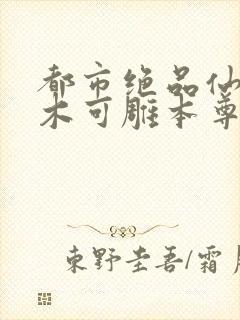 都市绝品仙
木可雕本尊
東野圭吾/霜月